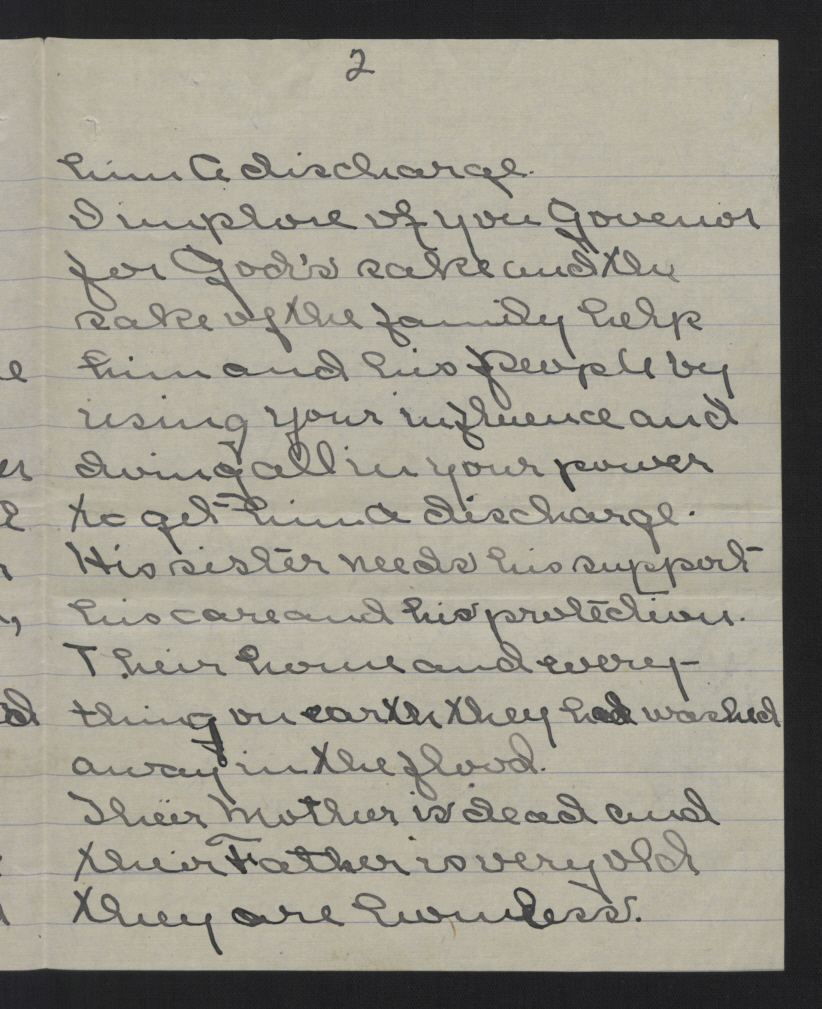 2
him a discharge.
I implore of you Govenor
for God's sake and the
sake of the family help
him and his people by
using your influence and
doing all in your power
to get him a discharge.
His sister needs his support
his care and his protection.
Their home and every-
thing on earth they had washed
away in the flood.
Their Mother is dead and
their Father is very old
they are homeless.